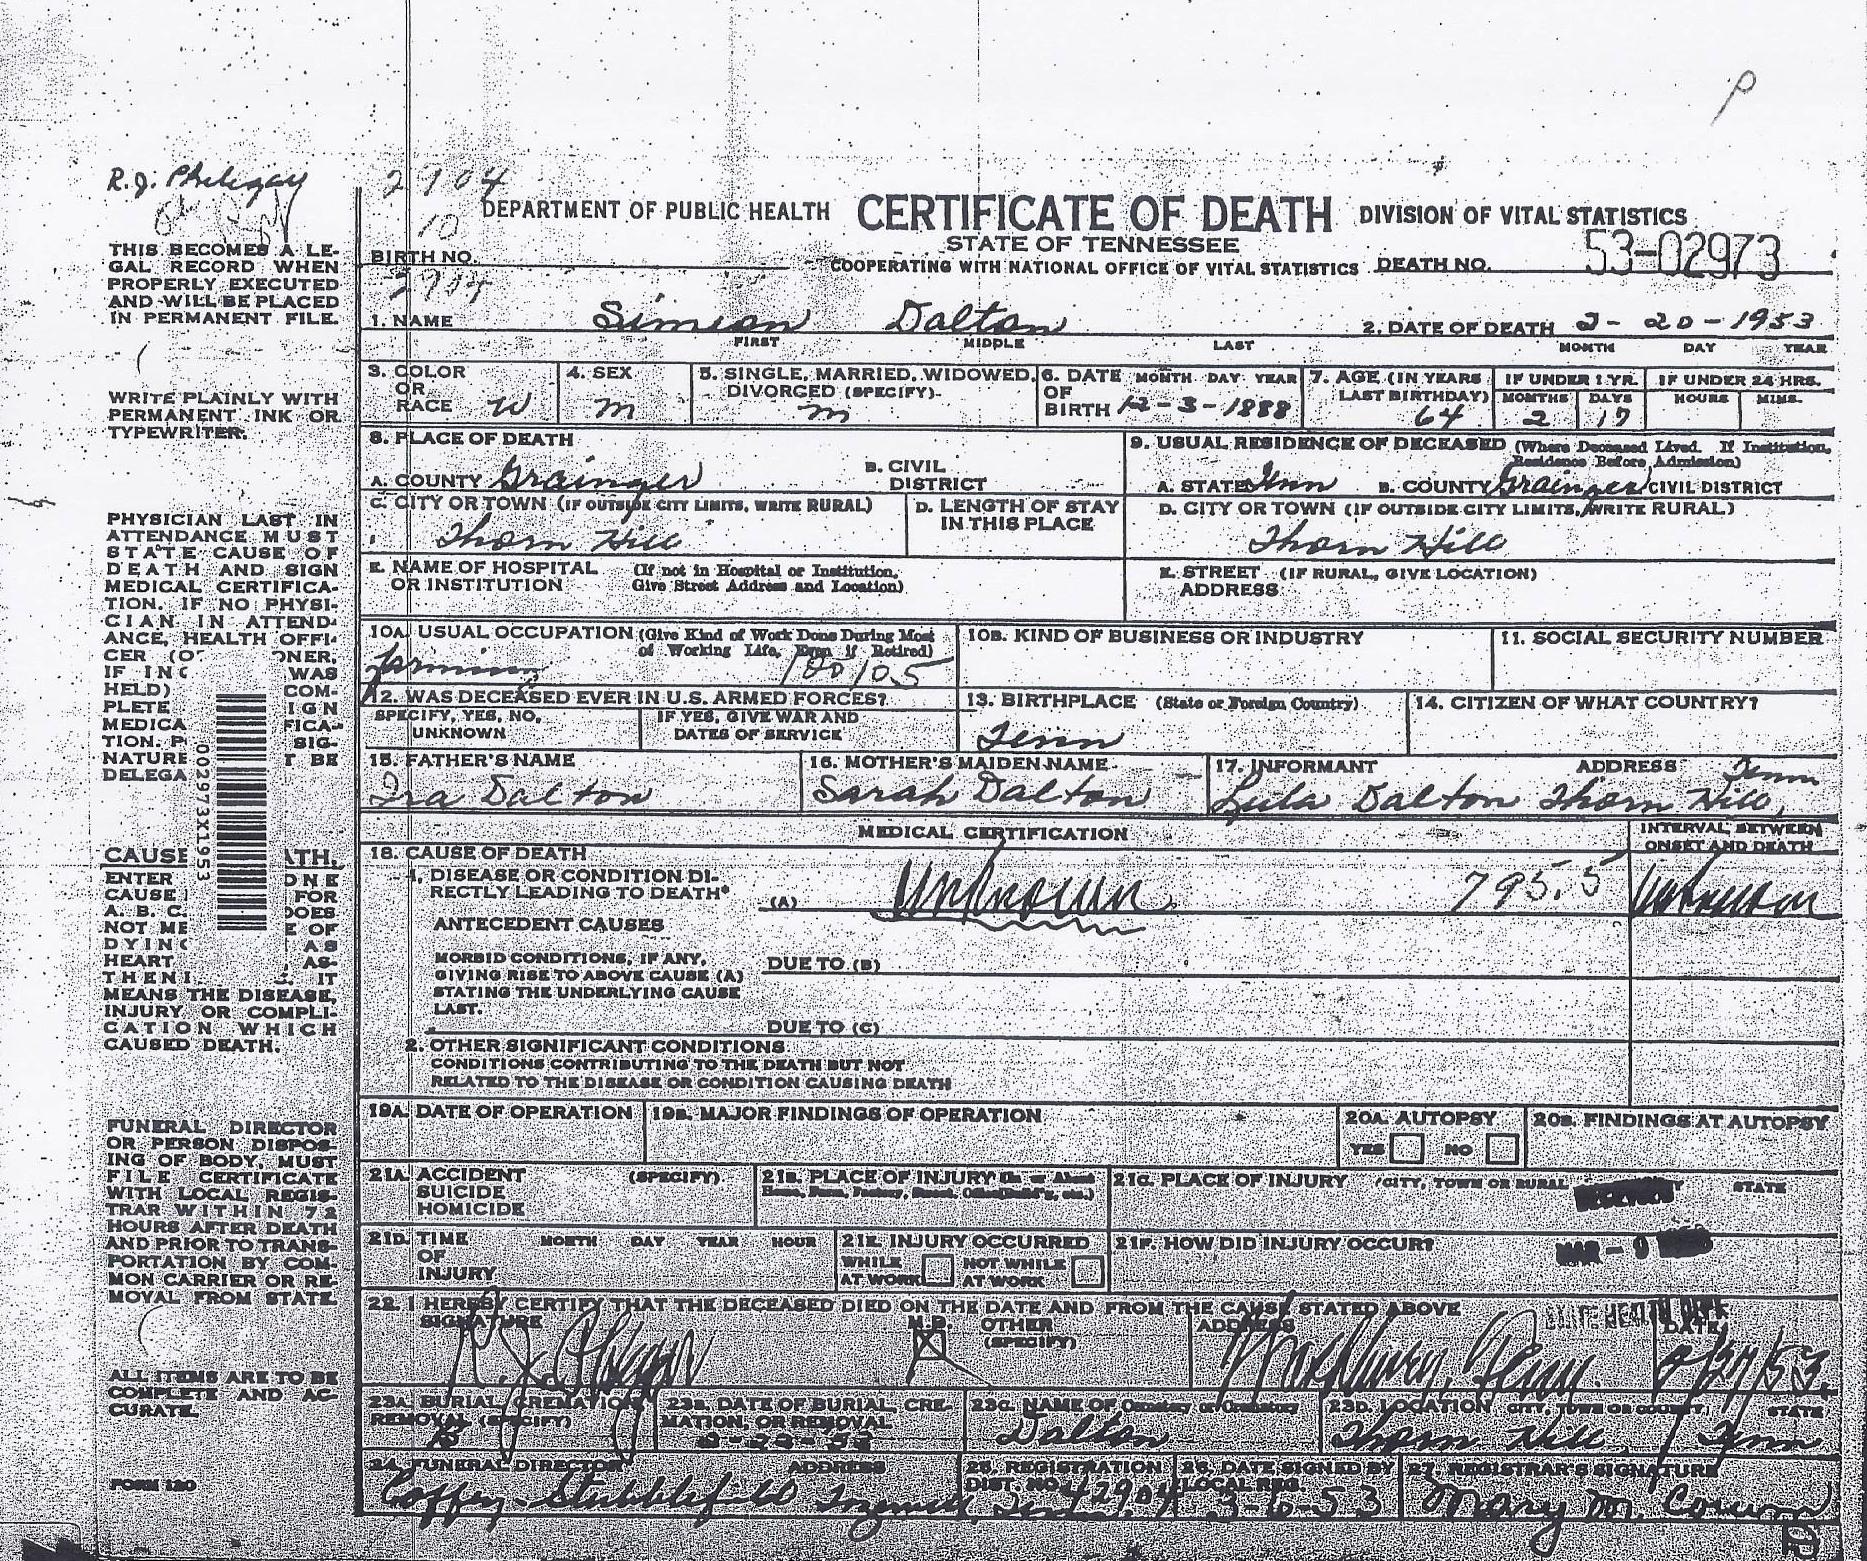 P
R.J. Phlegar
2904
10
DEPARTMENT OF PUBLIC HEALTH CERTIFICATE OF DEATH DIVISION OF VITAL STATISTICS
STATE OF TENNESSEE
BIRTH NO. COOPERATING WITH NATIONAL OFFICE OF VITAL STATISTICS DEATH NO. 53-02973
1. NAME Simeon Dalton 2. DATE OF DEATH 2-20-1953
FIRST MIDDLE LAST MONTH DAY YEAR
3. COLOR OR RACE W
4. SEX M
5. SINGLE, MARRIED, WIDOWED, DIVORCED (SPECIFY) M
6. DATE OF BIRTH MONTH DAY YEAR 12-3-1888
7. AGE (IN YEARS LAST BIRTHDAY) 64
IF UNDER 1 YR. MONTHS 2 DAYS 17
IF UNDER 24 HRS. HOURS MINS.
8. PLACE OF DEATH
A. COUNTY Grainger B. CIVIL DISTRICT
C. CITY OR TOWN (IF OUTSIDE CITY LIMITS, WRITE RURAL) Thorn Hill
D. LENGTH OF STAY IN THIS PLACE
E. NAME OF HOSPITAL OR INSTITUTION (If not in Hospital or Institution, Give Street Address and Location)
9. USUAL RESIDENCE OF DECEASED (Where Deceased Lived. If Institution, Residence Before Admission)
A. STATE Tenn B. COUNTY Grainger CIVIL DISTRICT
D. CITY OR TOWN (IF OUTSIDE CITY LIMITS, WRITE RURAL) Thorn Hill
E. STREET ADDRESS (IF RURAL, GIVE LOCATION)
10A. USUAL OCCUPATION (Give Kind of Work Done During Most of Working Life, Even if Retired) farming 100 105
10B. KIND OF BUSINESS OR INDUSTRY
11. SOCIAL SECURITY NUMBER
12. WAS DECEASED EVER IN U.S. ARMED FORCES?
SPECIFY, YES, NO, UNKNOWN
IF YES, GIVE WAR AND DATES OF SERVICE
13. BIRTHPLACE (State or Foreign Country) Tenn
14. CITIZEN OF WHAT COUNTRY?
15. FATHER'S NAME Ira Dalton
16. MOTHER'S MAIDEN NAME Sarah Dalton
17. INFORMANT ADDRESS Lula Dalton Thorn Hill, Tenn
MEDICAL CERTIFICATION
INTERVAL BETWEEN ONSET AND DEATH
18. CAUSE OF DEATH
1. DISEASE OR CONDITION DIRECTLY LEADING TO DEATH* (A) Unknown 795.5 Unknown
ANTECEDENT CAUSES
MORBID CONDITIONS, IF ANY, GIVING RISE TO ABOVE CAUSE (A) STATING THE UNDERLYING CAUSE LAST.
DUE TO (B)
DUE TO (C)
2. OTHER SIGNIFICANT CONDITIONS
CONDITIONS CONTRIBUTING TO THE DEATH BUT NOT
RELATED TO THE DISEASE OR CONDITION CAUSING DEATH
19A. DATE OF OPERATION
19B. MAJOR FINDINGS OF OPERATION
20A. AUTOPSY YES NO
20B. FINDINGS AT AUTOPSY
21A. ACCIDENT SUICIDE HOMICIDE (SPECIFY)
21B. PLACE OF INJURY
21C. PLACE OF INJURY (CITY, TOWN OR RURAL STATE
21D. TIME OF INJURY MONTH DAY YEAR HOUR
21E. INJURY OCCURRED WHILE AT WORK NOT WHILE AT WORK
21F. HOW DID INJURY OCCUR?
22. I HEREBY CERTIFY THAT THE DECEASED DIED ON THE DATE AND FROM THE CAUSE STATED ABOVE
SIGNATURE R. J. Phlegar M.D. OTHER (SPECIFY) ADDRESS Washburn, Tenn. DATE 2/27/53
23A. BURIAL, CREMATION REMOVAL (SPECIFY) B
23B. DATE OF BURIAL, CREMATION, OR REMOVAL 2-22-53
23C. NAME OF Cemetery or Crematory Dalton
23D. LOCATION CITY, TOWN OR COUNTY, STATE Thorn Hill, Tenn
24. FUNERAL DIRECTOR ADDRESS Coffey-Stubblefield Tazewell, Tenn
25. REGISTRATION DIST. NO. 42904
26. DATE SIGNED BY LOCAL REG. 3-6-53
27. REGISTRAR'S SIGNATURE Mary M.
THIS BECOMES A LE-
GAL RECORD WHEN
PROPERLY EXECUTED
AND WILL BE PLACED
IN PERMANENT FILE.
WRITE PLAINLY WITH
PERMANENT INK OR
TYPEWRITER.
PHYSICIAN LAST IN
ATTENDANCE MUST
STATE CAUSE OF
DEATH AND SIGN
MEDICAL CERTIFICA-
TION. IF NO PHYSI-
CIAN IN ATTEND-
ANCE, HEALTH OFFI-
CER (O ONER,
IF INQ WAS
HELD) COM-
PLETE IGN
MEDICA FICA-
TION. P SIG-
NATURE T BE
DELEGA
002973X1953
CAUSE ATH.
ENTER ONE
CAUSE FOR
A. B. C. DOES
NOT ME E OF
DYING AS
HEART AS-
THENI IT
MEANS THE DISEASE,
INJURY, OR COMPLI-
CATION WHICH
CAUSED DEATH.
FUNERAL DIRECTOR
OR PERSON DISPOS-
ING OF BODY, MUST
FILE CERTIFICATE
WITH LOCAL REGIS-
TRAR WITHIN 72
HOURS AFTER DEATH
AND PRIOR TO TRANS-
PORTATION BY COM-
MON CARRIER OR RE-
MOVAL FROM STATE.
ALL ITEMS ARE TO BE
COMPLETE AND AC-
CURATE.
FORM 120